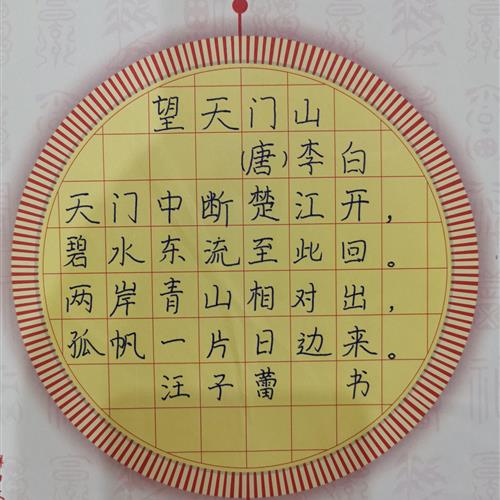 望天门山
(唐)李白
天门中断楚江开，
碧水东流至此回。
两岸青山相对出，
孤帆一片日边来。
汪子蕾 书